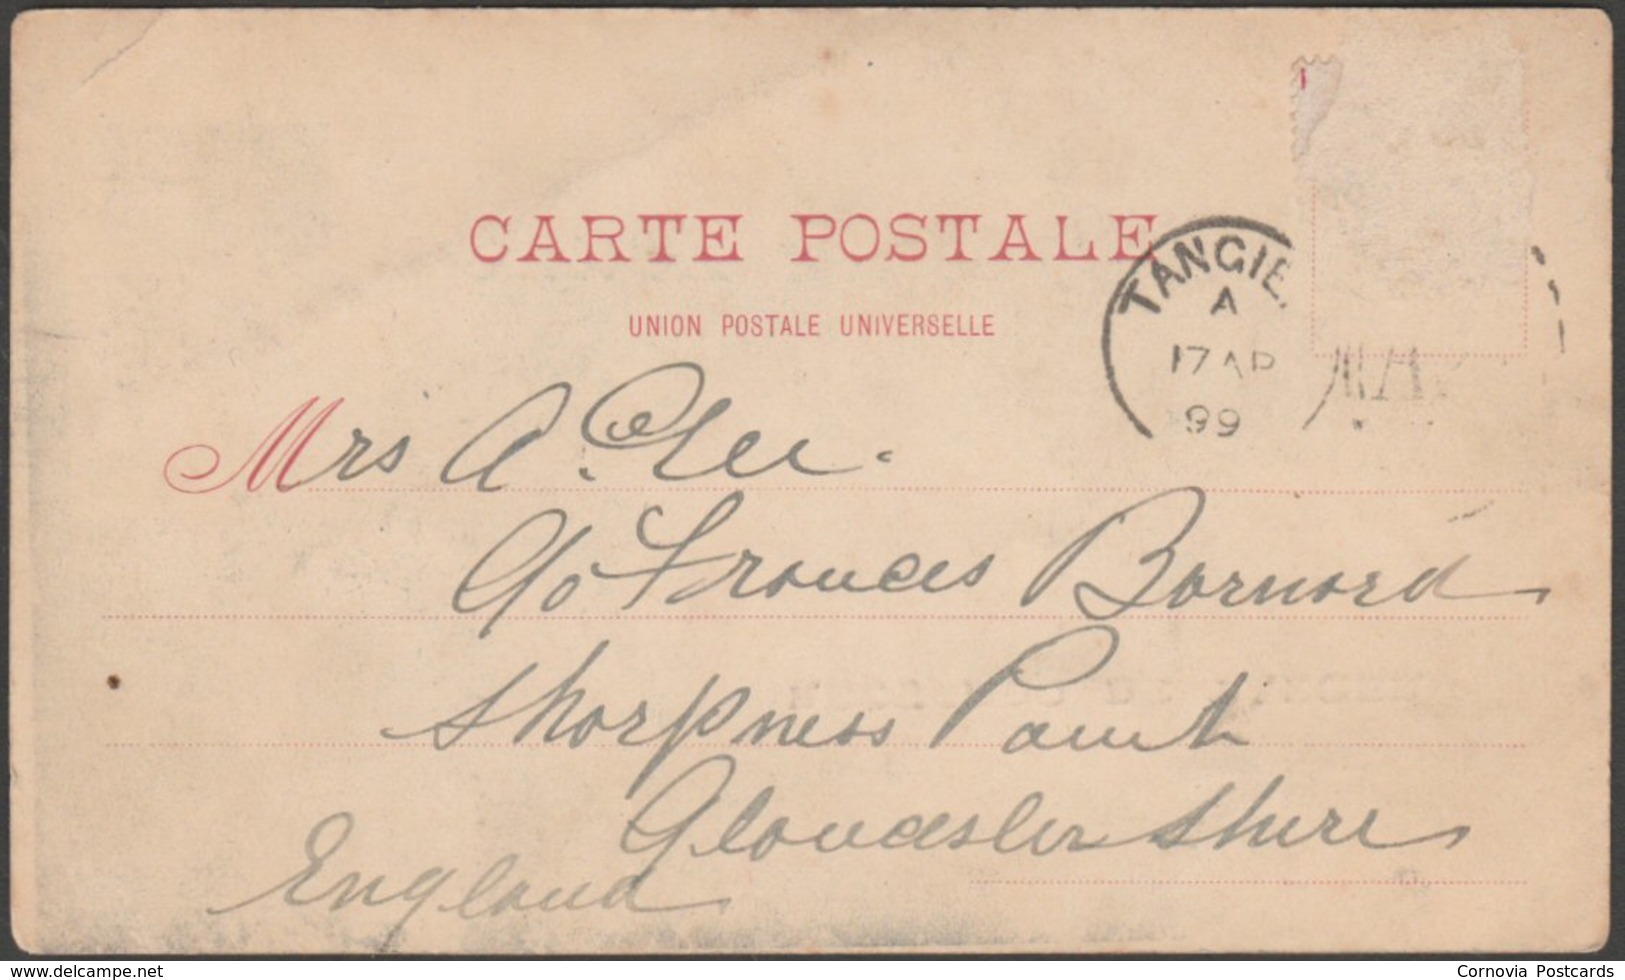 CARTE POSTALE
UNION POSTALE UNIVERSELLE
TANGIE
A
17 AP
99
Mrs A.
c/o Frances Barnard
Sharpness Point
Gloucestershire
England
www.delcampe.net
Cornovia Postcards